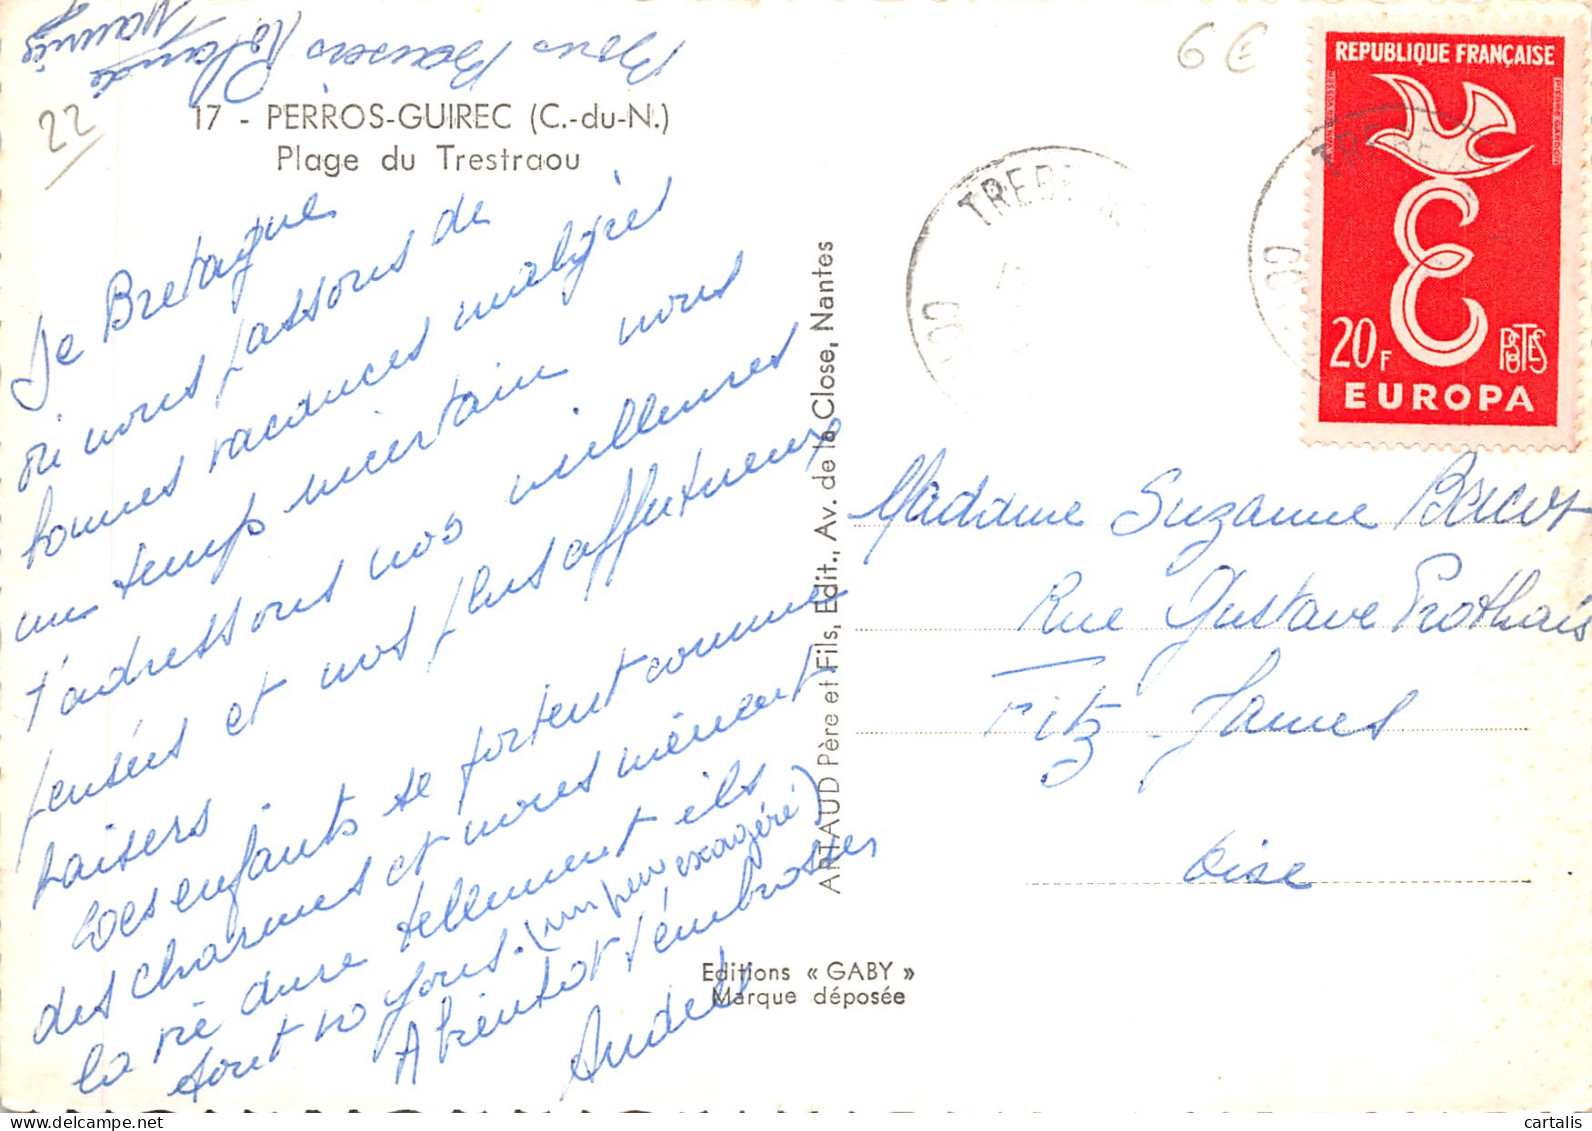 Bons Baisers Rolande
22
17 - PERROS-GUIREC (C.-du-N.)
Plage du Trestraou
De Bretagne
où nous passons de
bonnes vacances malgré
un temps incertain nous
t'adressons nos meilleures
pensées et nos plus affectueux
baisers
Les enfants se portent comme
des charmes et nous mènent
la vie dure tellement ils
sont no yous. (un peu exagéré)
A bientôt t'embrasser
ARTAUD Père et Fils, Edit., Av. de la Close, Nantes
Editions « GABY »
Marque déposée
6 €
REPUBLIQUE FRANÇAISE
PIERRE GANDON
20F
POSTES
EUROPA
TREBEU
CO
TREBEU
CO
Madame Suzanne
Rue Gustave Prothais
Fitz-James
Oise
© cartalis